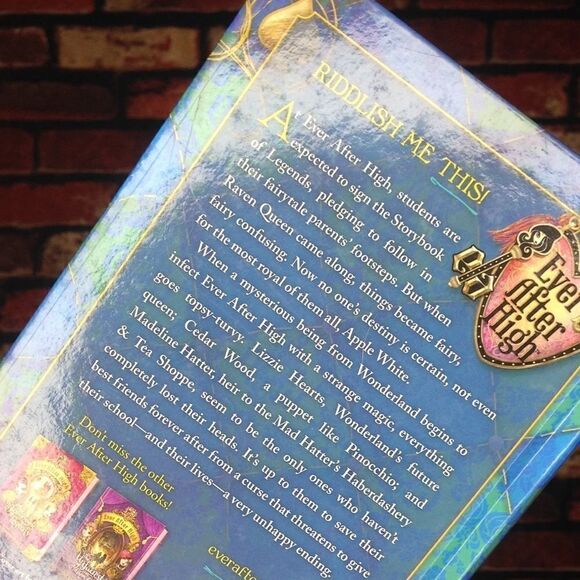 RIDDLISH ME THIS!
At Ever After High, students are
expected to sign the Storybook
of Legends, pledging to follow in
their fairytale parents' footsteps. But when
Raven Queen came along, things became fairy,
fairy confusing. Now no one's destiny is certain, not even
for the most royal of them all, Apple White.
When a mysterious being from Wonderland begins to
infect Ever After High with a strange magic, everything
goes topsy-turvy. Lizzie Hearts, Wonderland's future
queen; Cedar Wood, a puppet like Pinocchio; and
Madeline Hatter, heir to the Mad Hatter's Haberdashery
& Tea Shoppe, seem to be the only ones who haven't
completely lost their heads. It's up to them to save their
best friends forever after from a curse that threatens to give
their school—and their lives—a very unhappy ending.
Don't miss the other
Ever After High books!
everafte
Ever
After
High